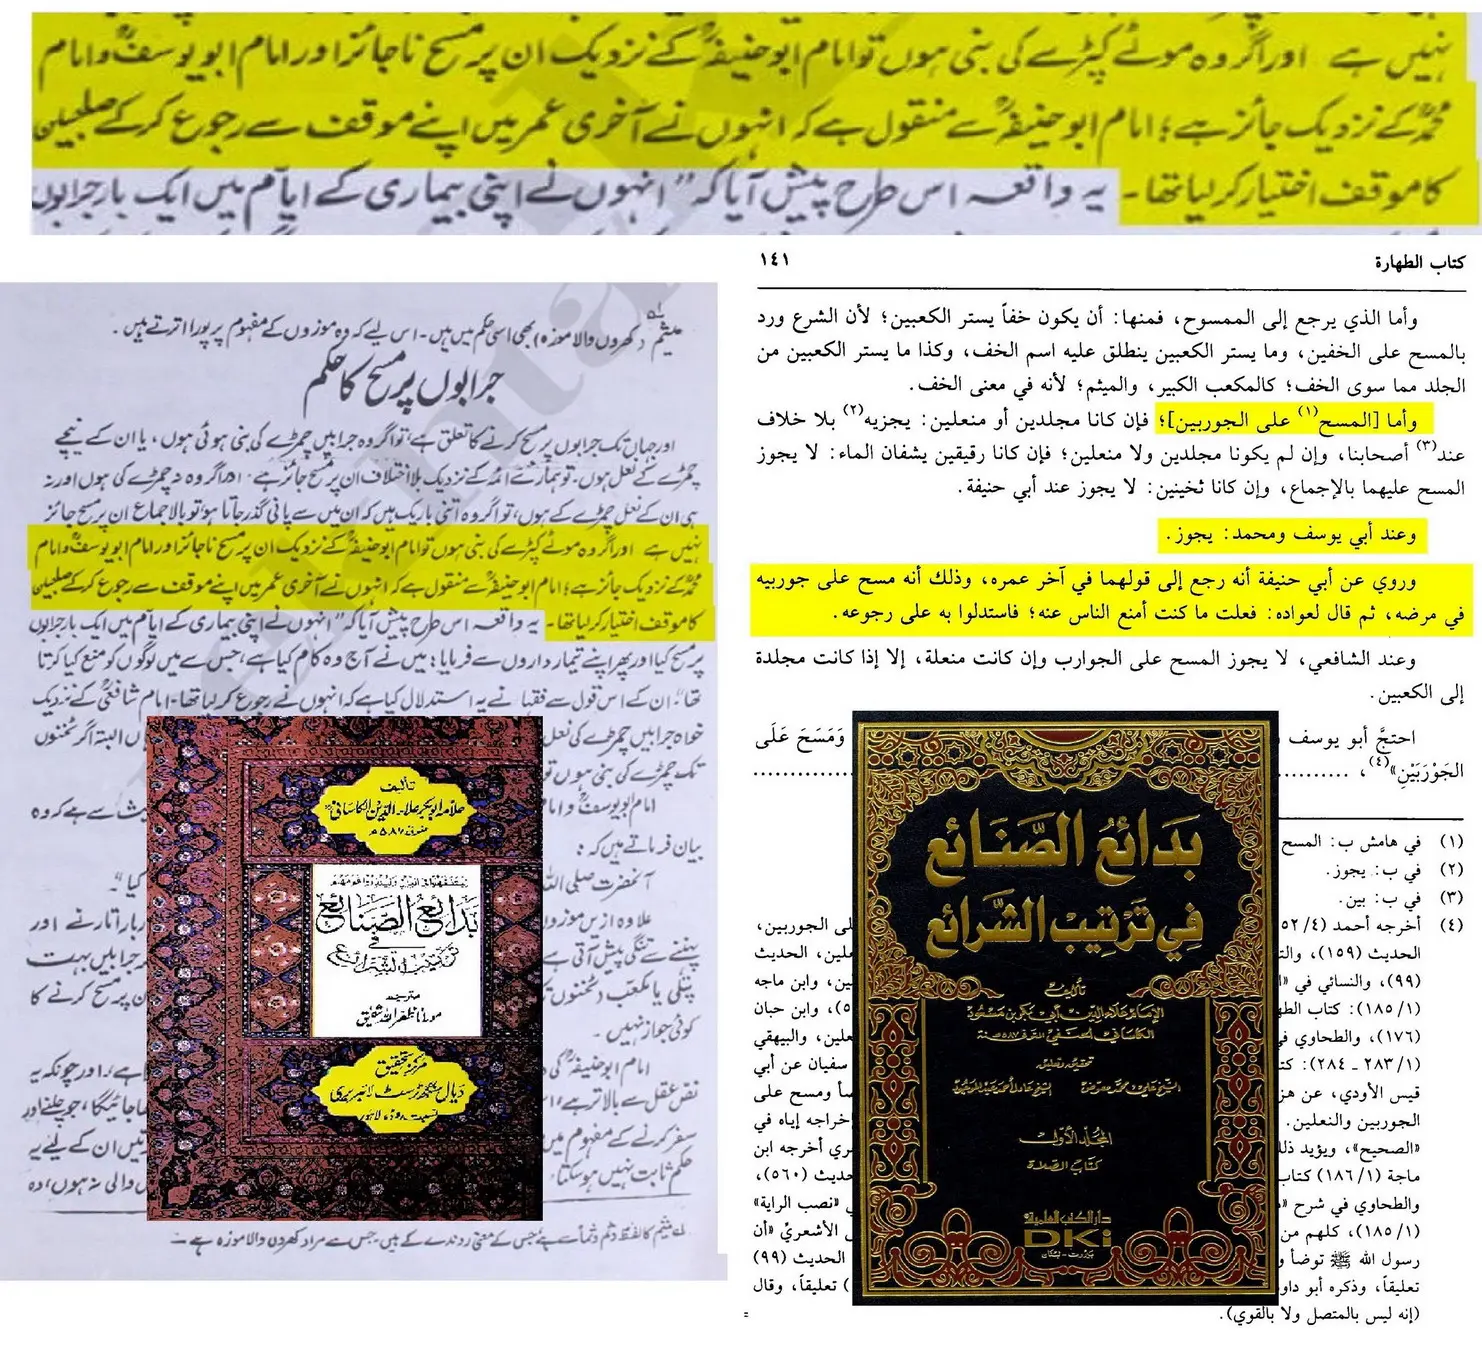 نہیں ہے اور اگر وہ موٹے کپڑے کی بنی ہوں تو امام ابو حنیفہؒ کے نزدیک ان پر مسح ناجائز اور امام ابو یوسفؒ و امام
محمدؒ کے نزدیک جائز ہے؛ امام ابو حنیفہؒ سے منقول ہے کہ انہوں نے آخری عمر میں اپنے موقف سے رجوع کر کے صاحبین
کا موقف اختیار کر لیا تھا۔ یہ واقعہ اس طرح پیش آیا کہ "انہوں نے اپنی بیماری کے ایام میں ایک بار جرابوں
میثم (کھروں والا موزہ) بھی اسی حکم میں ہیں۔ اس لیے کہ وہ موزوں کے مفہوم پر پورا اترتے ہیں۔
جرابوں پر مسح کا حکم
اور جہاں تک جرابوں پر مسح کرنے کا تعلق ہے، تو اگر وہ جرابیں چمڑے کی بنی ہوئی ہوں، یا ان کے نیچے
چمڑے کے نعل ہوں۔ تو ہمارے ائمہ کے نزدیک بلا اختلاف ان پر مسح جائز ہے۔ اور اگر وہ نہ چمڑے کی ہوں اور نہ
ہی ان کے نعل چمڑے کے ہوں، تو اگر وہ اتنی باریک ہیں کہ ان میں سے پانی گذر جاتا ہو تو بالاجماع ان پر مسح جائز
نہیں ہے اور اگر وہ موٹے کپڑے کی بنی ہوں تو امام ابو حنیفہؒ کے نزدیک ان پر مسح ناجائز اور امام ابو یوسفؒ و امام
محمدؒ کے نزدیک جائز ہے؛ امام ابو حنیفہؒ سے منقول ہے کہ انہوں نے آخری عمر میں اپنے موقف سے رجوع کر کے صاحبین
کا موقف اختیار کر لیا تھا۔ یہ واقعہ اس طرح پیش آیا کہ "انہوں نے اپنی بیماری کے ایام میں ایک بار جرابوں
پر مسح کیا اور پھر اپنے تیمار داروں سے فرمایا: میں نے آج وہ کام کیا ہے، جس سے میں لوگوں کو منع کیا کرتا
تھا"؛ ان کے اس قول سے فقہا نے یہ استدلال کیا ہے کہ انہوں نے رجوع کر لیا تھا۔ امام شافعیؒ کے نزدیک
خواہ جرابیں چمڑے کی نعل البتہ اگر ٹخنوں
تک چمڑے کی بنی ہوں تو
امام ابو یوسفؒ و امام ث سے ہے کہ وہ
بیان فرماتے ہیں کہ:
آنحضرت صلی اللہ کیا"۔
علاوہ ازیں موزوں بار اتارنے اور
پہننے سے تنگی پیش آتی ہے جرابیں بہت
پتلی یا مکعب (ٹخنوں ن پر مسح کرنے کا
کوئی جواز نہیں۔
امام ابو حنیفہؒ کی ہے، اور چونکہ یہ
نص عقل سے بالاتر ہے، جائیگا، جو چلنے اور
سفر کرنے کے مفہوم میں ان کے لیے یہ
حکم ثابت نہیں ہو سکتا۔ والی نہ ہوں، وہ
تألیف
علامہ ابوبکر علاء الدین الکاسانیؒ
بدائع الصنائع
فی
ترتیب الشرائع
مترجمہ
مرکز تحقیق
دیال سنگھ ٹرسٹ لائبریری
نسبت روڈ، لاہور
كتاب الطهارة
١٤١
وأما الذي يرجع إلى الممسوح، فمنها: أن يكون خفاً يستر الكعبين؛ لأن الشرع ورد
بالمسح على الخفين، وما يستر الكعبين ينطلق عليه اسم الخف، وكذا ما يستر الكعبين من
الجلد مما سوى الخف؛ كالمكعب الكبير، والميثم؛ لأنه في معنى الخف.
وأما [المسح(١) على الجوربين]؛ فإن كانا مجلدين أو منعلين: يجزيه(٢) بلا خلاف
عند(٣) أصحابنا، وإن لم يكونا مجلدين ولا منعلين؛ فإن كانا رقيقين يشفان الماء: لا يجوز
المسح عليهما بالإجماع، وإن كانا ثخينين: لا يجوز عند أبي حنيفة.
وعند أبي يوسف ومحمد: يجوز.
وروي عن أبي حنيفة أنه رجع إلى قولهما في آخر عمره، وذلك أنه مسح على جوربيه
في مرضه، ثم قال لعواده: فعلت ما كنت أمنع الناس عنه؛ فاستدلوا به على رجوعه.
وعند الشافعي، لا يجوز المسح على الجوارب وإن كانت منعلة، إلا إذا كانت مجلدة
إلى الكعبين.
احتجَّ أبو يوسف وَمَسَحَ عَلَى
الجَوْرَبَيْنِ»(٤)، ..............
(١) في هامش ب: المسح
(٢) في ب: يجوز.
(٣) في ب: بين.
(٤) أخرجه أحمد (٤/ ٢٥٢ لى الجوربين،
الحديث (١٥٩)، والت علين، الحديث
(٩٩)، والنسائي في «ا ين، وابن ماجه
(١/ ١٨٥): كتاب الطه ٥)، وابن حبان
(١٧٦)، والطحاوي في علين، والبيهقي
(١/ ٢٨٣ ـ ٢٨٤): كت سفيان عن أبي
قيس الأودي، عن هز ومسح على
الجوربين والنعلين. إخراجه إياه في
«الصحيح»، ويؤيد ذل ري أخرجه ابن
ماجة (١/ ١٨٦) كتاب حديث (٥٦٠)،
والطحاوي في شرح ي «نصب الراية»
(١/ ١٨٥)، كلهم من الأشعري «أن
رسول الله ﷺ توضأ و الحديث (٩٩)
تعليقاً، وذكره أبو داو ) تعليقاً، وقال
(إنه ليس بالمتصل ولا بالقوي).
=
بَدَائِعُ الصَّنَائِعِ
فِي تَرْتِيبِ الشَّرَائِعِ
تأليف
الإمام علاء الدين أبي بكر بن مسعود
الكاساني الحنفي المتوفى ٥٨٧ سنة
تحقيق وتعليق
الشيخ علي محمد معوض الشيخ عادل أحمد عبد الموجود
المجلد الأول
كتاب الصلاة
دار الكتب العلمية
DKi
بيروت - لبنان